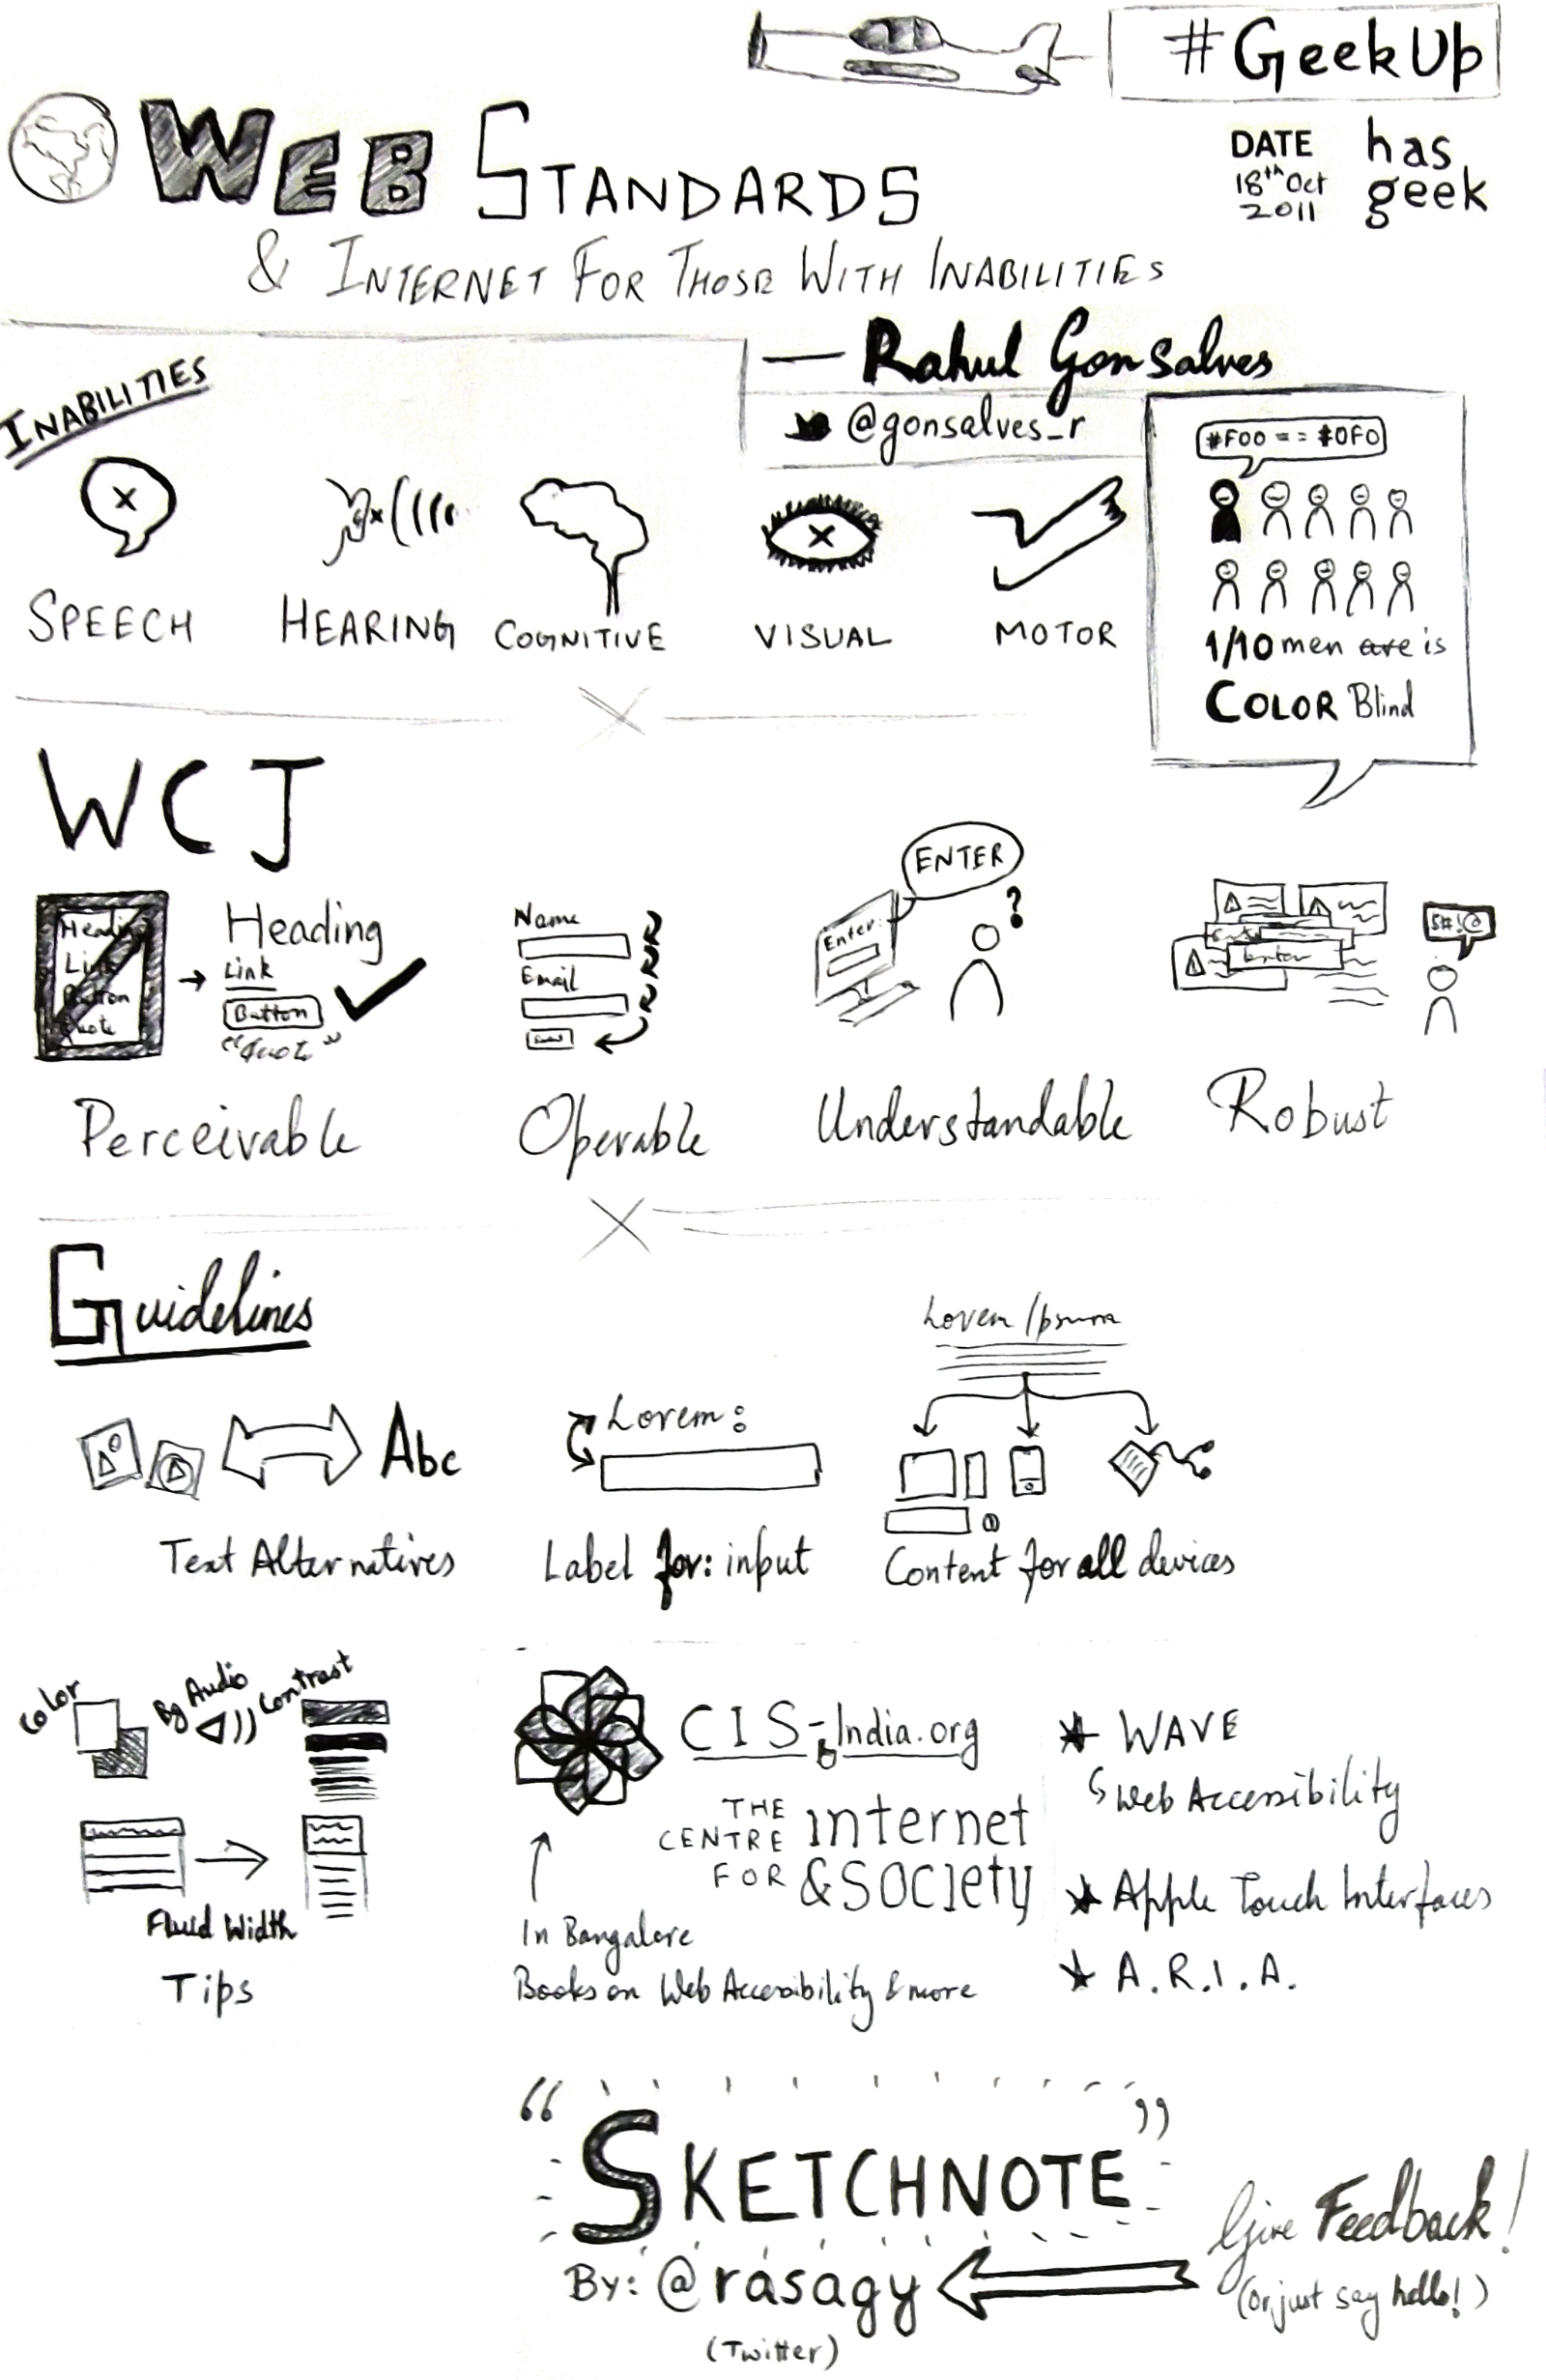 #GeekUp
DATE
18th Oct
2011
has
geek
WEB STANDARDS
& INTERNET FOR THOSE WITH INABILITIES
— Rahul Gonsalves
@gonsalves_r
INABILITIES
SPEECH
HEARING
COGNITIVE
VISUAL
MOTOR
#F00 == #0F0
1/10 men are is
COLOR Blind
WCJ
Heading
Link
Button
Quote
Heading
Link
Button
"Quote"
Perceivable
Name
Email
Operable
ENTER
?
Enter
Understandable
Enter
$#!@
Robust
Guidelines
Abc
Text Alternatives
Lorem:
Label for: input
Lorem Ipsum
Content for all devices
Color
Bg Audio
Contrast
Fluid Width
Tips
CIS-India.org
THE CENTRE FOR internet & society
In Bangalore
Books on Web Accessibility & more
WAVE
Web Accessibility
Apple Touch Interfaces
A.R.I.A.
"SKETCHNOTE"
By: @rasagy
(Twitter)
Give Feedback!
(Or just say hello!)